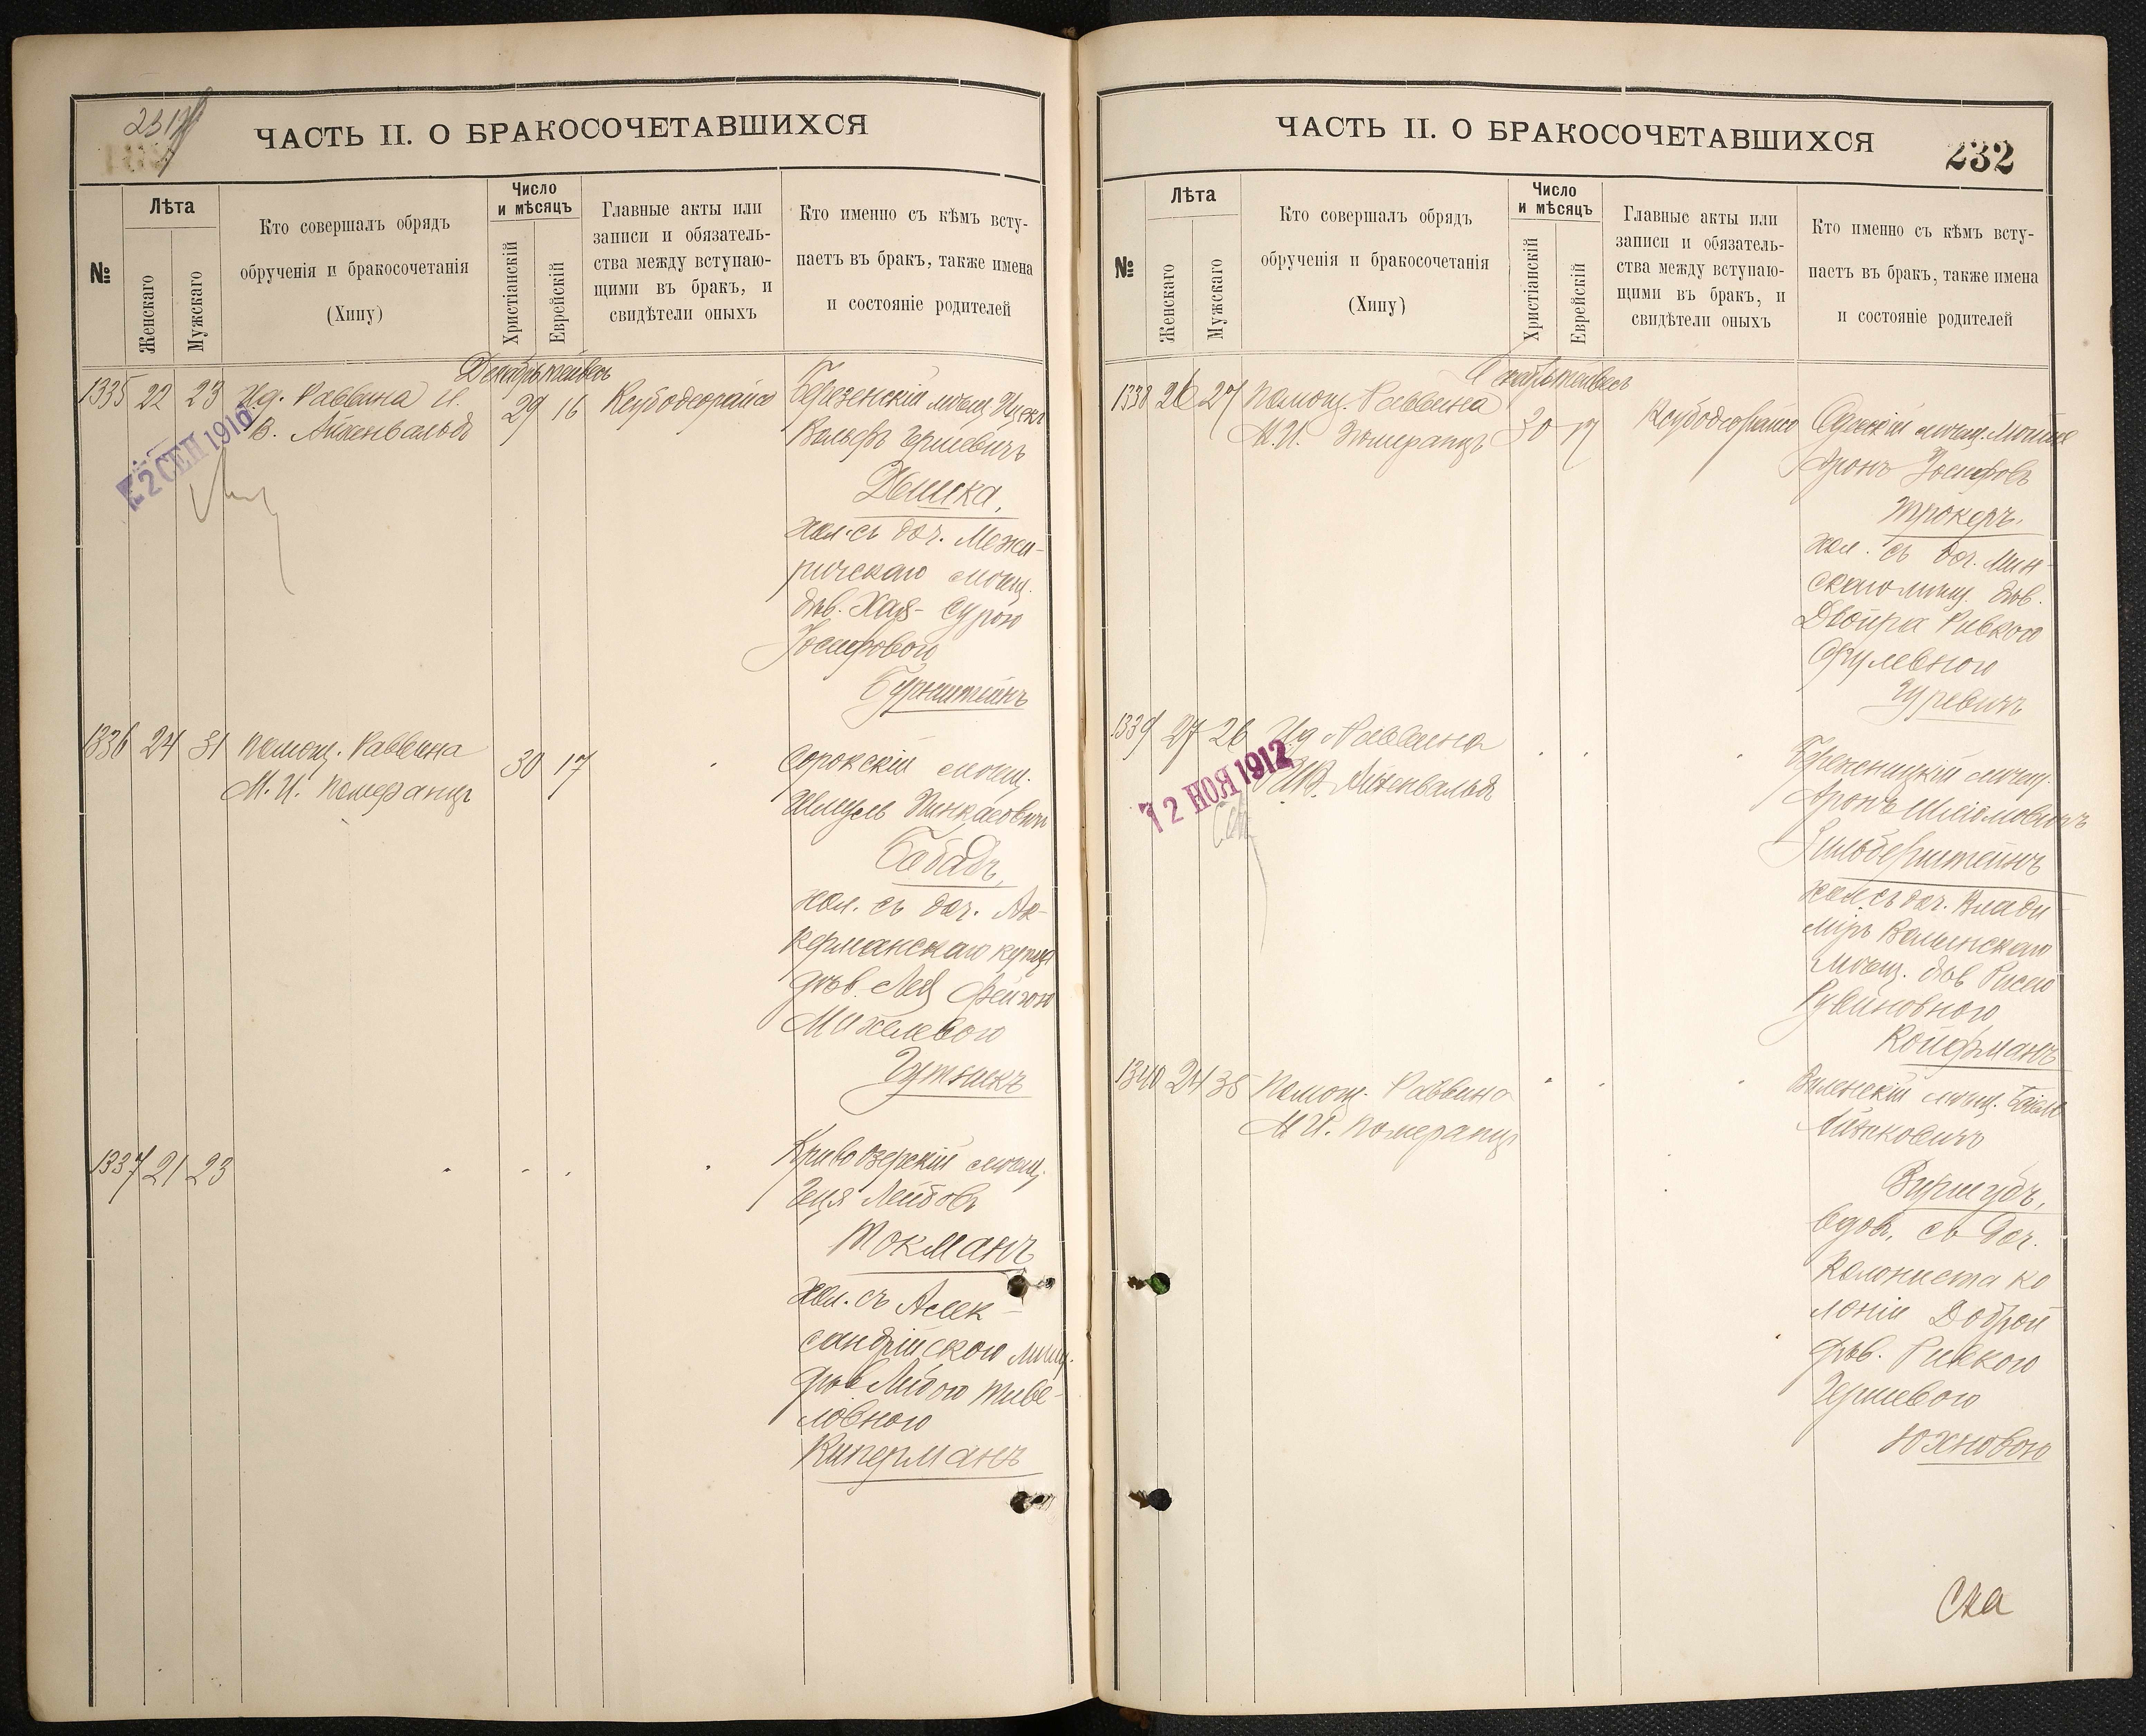 ЧАСТЬ II. О БРАКОСОЧЕТАВШИХСЯ
№
Лѣта
Женскаго
Мужскаго
Кто совершалъ обрядъ
обрученія и бракосочетанія
(Хипу)
Число
и мѣсяцъ
Христіанскій
Еврейскій
Главные акты или
записи и обязатель-
ства между вступаю-
щими въ бракъ, и
свидѣтели оныхъ
Кто именно съ кѣмъ всту-
паетъ въ бракъ, также имена
и состояніе родителей
Декабрь тейвесъ
1335 22 23
Ид. Раввина И.
В. Айхенвальдъ
29 16
Ксубодеорайсо
Березенскій мѣщ. Ицекъ
Вольфъ Гершевичъ
Дышка,
хол. съ доч. Межи-
ричскаго мѣщ.
дѣв. Хая-Сурою
Іосифовою
Бурштейнъ
2 СЕН 1916
1336 24 31
Помощ. Раввина
М. И. Померанцъ
30 17
Сорокскій мѣщ.
Шмуль Пинкасовичъ
Бабадъ,
хол. съ доч. Ак-
керманскаго купца
дѣв. Лея Фейгою
Михелевою
Гутникъ
1337 21 23
Кривоозерскій мѣщ.
Геця Лейбовъ
Токманъ
хол. съ Алек-
сандрійскою мѣщ.
дѣв. Либою
ловною
Киперманъ
ЧАСТЬ II. О БРАКОСОЧЕТАВШИХСЯ
232
№
Лѣта
Женскаго
Мужскаго
Кто совершалъ обрядъ
обрученія и бракосочетанія
(Хипу)
Число
и мѣсяцъ
Христіанскій
Еврейскій
Главные акты или
записи и обязатель-
ства между вступаю-
щими въ бракъ, и
свидѣтели оныхъ
Кто именно съ кѣмъ всту-
паетъ въ бракъ, также имена
и состояніе родителей
Декабрь тейвесъ
1338 26 27
Помощ. Раввина
М. И. Померанцъ
30 17
Ксубодеорайсо
Одесскій мѣщ. Мойше
Аронъ Іосифовъ
Трокеръ.
хол. съ доч. Мин-
скаго мѣщ. дѣв.
Двойра Ривкою
Гуревичъ
1339 27 26
Ид. Раввина
И. В. Айхенвальдъ
12 НОЯ 1912
мѣщ.
Аронъ Шлiомовичъ
Зильберштейнъ
хол. съ доч. Влади-
міръ Волынскаго
мѣщ. дѣв. Расею
Рувиновною
Койфманъ
1340 24 35
Помощ. Раввина
М. И. Померанцъ
Виленскій мѣщ.
Айзиковичъ
вдов. съ доч.
колониста ко
лоніи Доброй
дѣв. Ривкою
Гершевою
Юхновою